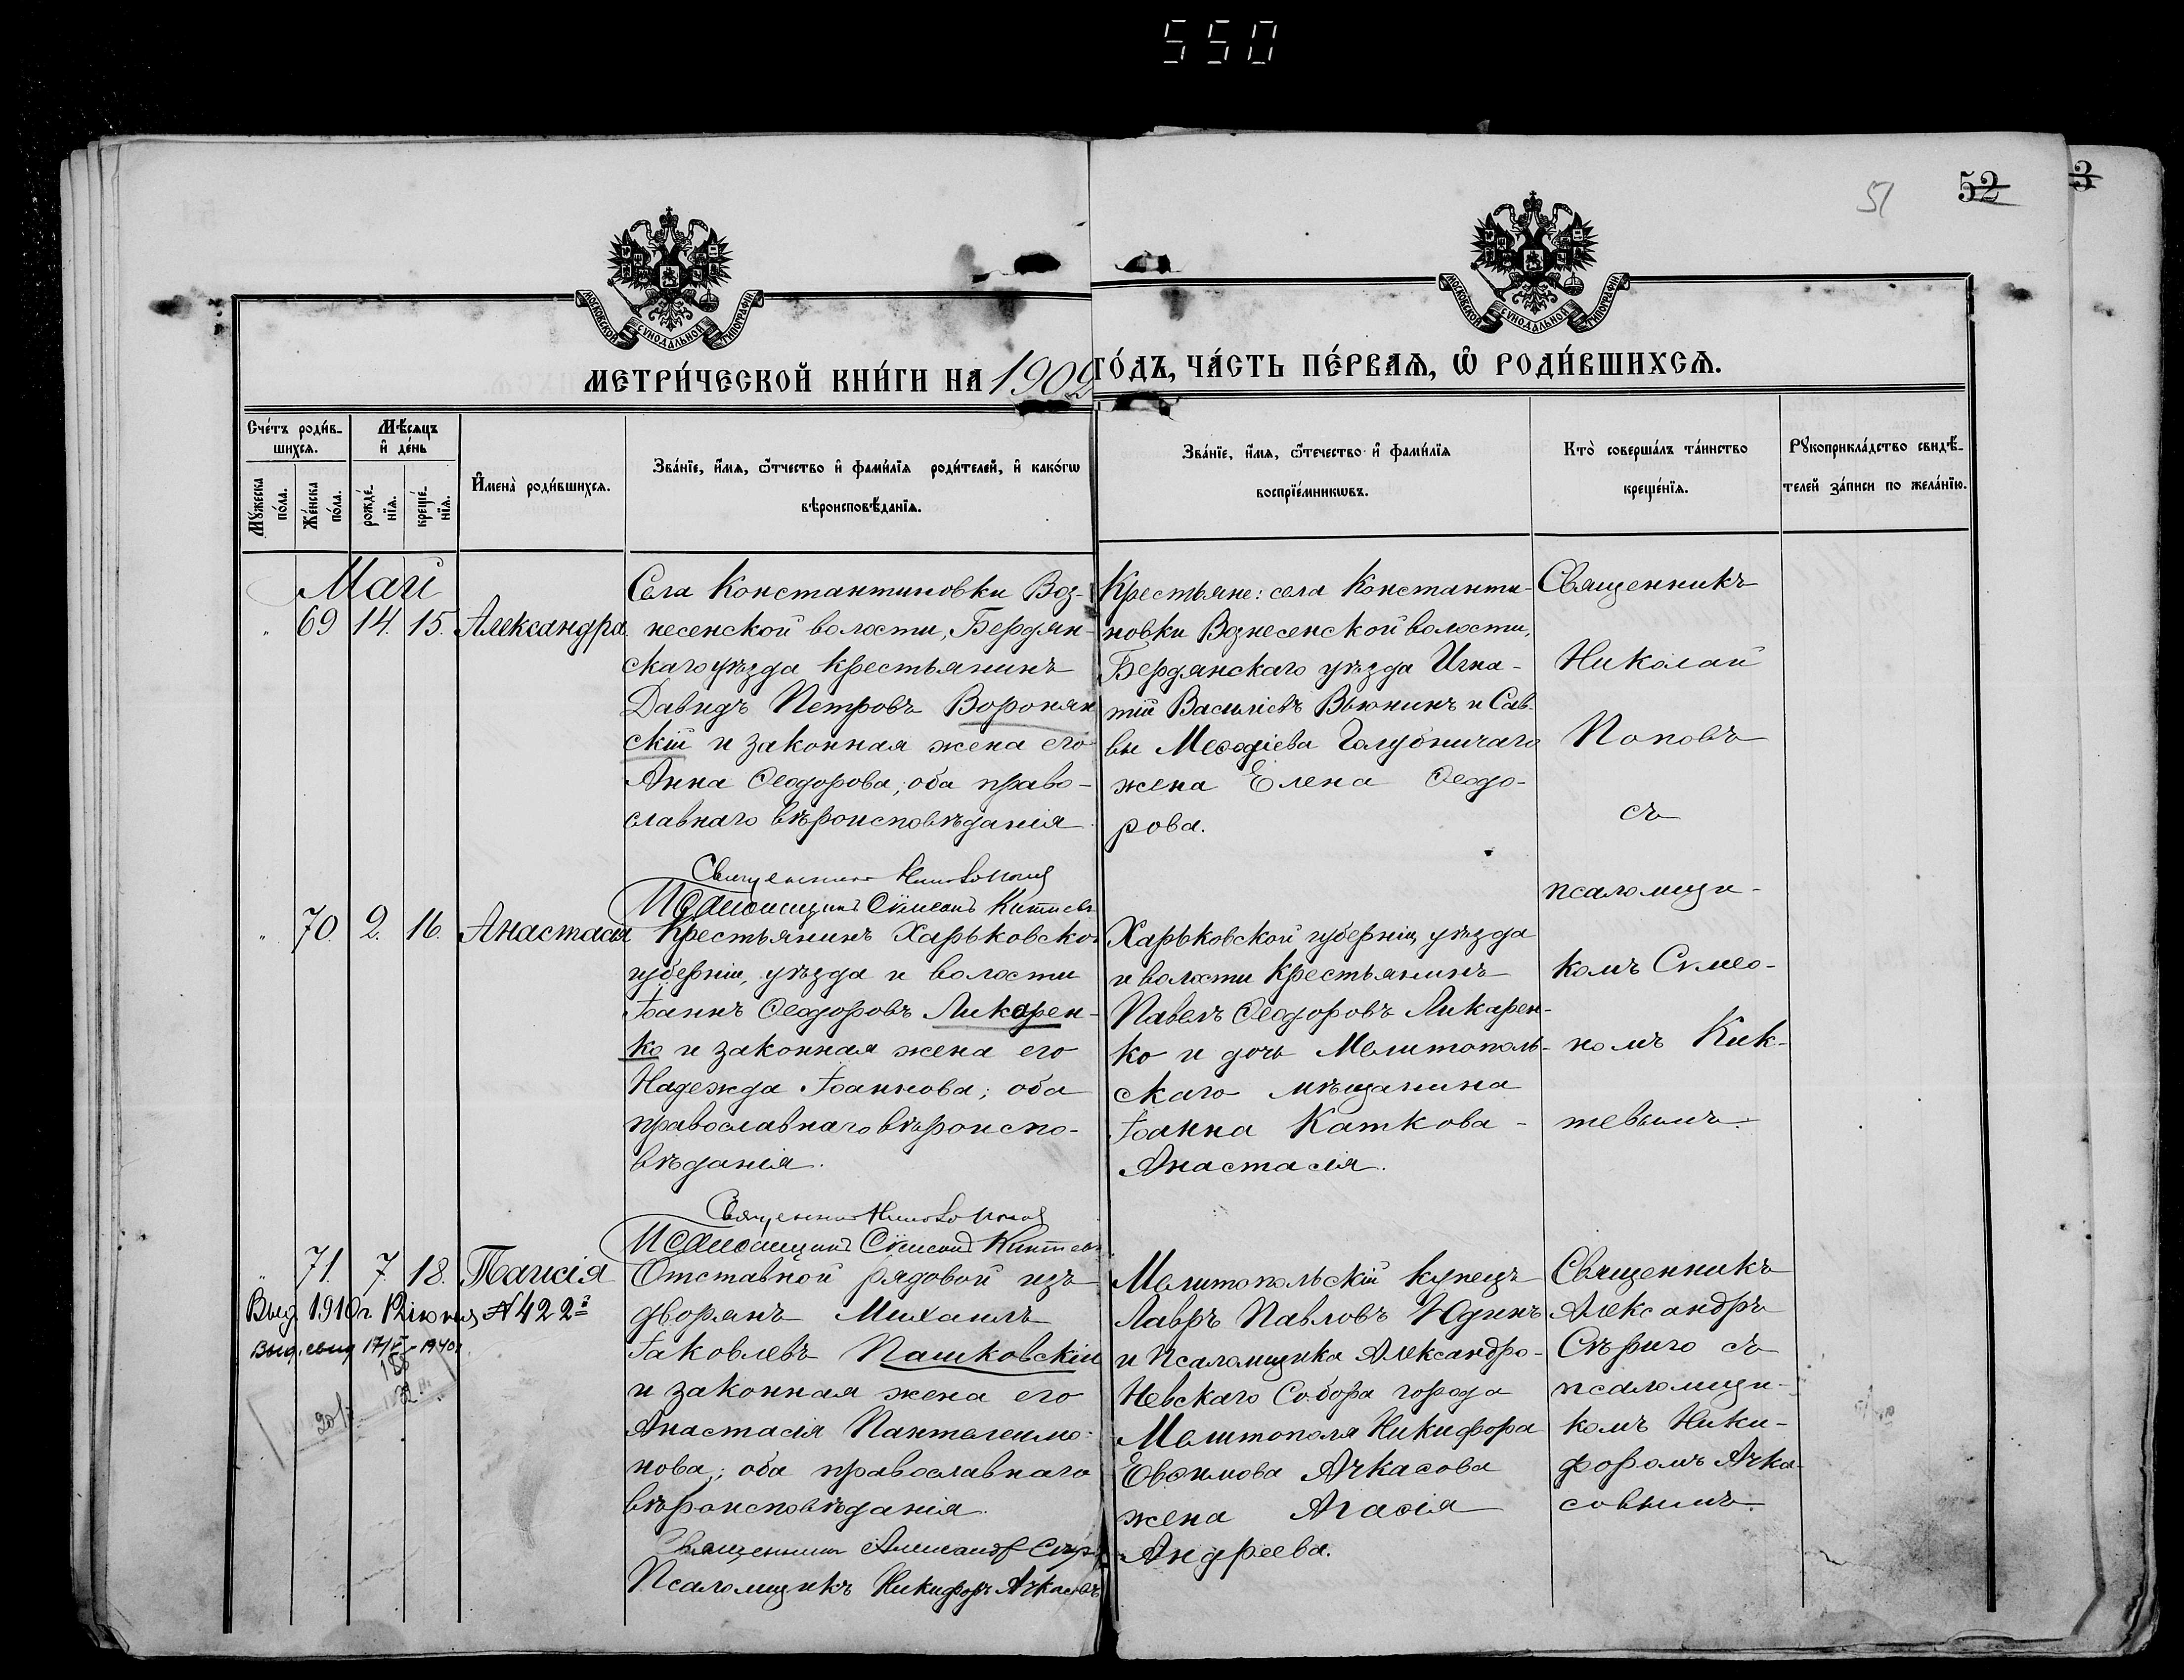 550
51
52
3
МОСКОВСКОЙ СУНОДАЛЬНОЙ ТИПОГРАФІИ
МОСКОВСКОЙ СУНОДАЛЬНОЙ ТИПОГРАФІИ
МЕТРИ́ЧЕСКОЙ КНИ́ГИ НА 1909 ГО́ДЪ, ЧА́СТЬ ПЕ́РВАѦ, Ѽ РОДИ́ВШИХСѦ.
Сче́тъ роди́в-
шихсѧ.
Мѣ́сѧцъ
и҆ де́нь
Мꙋжеска
по́ла.
Же́нска
по́ла.
рожде́-
нїѧ.
креще́-
нїѧ.
И҆мена̀ роди́вшихсѧ.
Зва́нїе, и҆́мѧ, ѻ҆́тчество и҆ фами́лїѧ роди́телей, и҆ како́гѡ
вѣроисповѣ́данїѧ.
Зва́нїе, и҆́мѧ, ѻ҆́течество и҆ фами́лїѧ
воспрїе́мникѡвъ.
Кто̀ соверша́лъ та́инство
креще́нїѧ.
Рꙋкоприкла́дство свидѣ́-
телей за́писи по жела́нїю.
Май
69 14. 15. Александра
Села Константиновки Воз-
несенской волости, Бердян-
скаго уѣзда крестьянинъ
Давидъ Петровъ Воронян
скій и законная жена его
Анна Ѳеодорова; оба право-
славнаго вѣроисповѣданія.
Священникъ Николай Поповъ
Псаломщикъ Сѵмеонъ Киктевъ
Крестьяне: села Константи-
новки Вознесенской волости,
Бердянскаго уѣзда Игна-
тій Василіевъ Вьюнинъ и Сав-
вы Меѳодіева Голубничаго
жена Елена Ѳеодо-
рова.
Священникъ
Николай
Поповъ
съ
псаломщи-
комъ Сѵмео-
номъ Кик-
тевымъ.
70. 2. 16. Анастасія
Крестьянинъ Харьковской
губерніи, уѣзда и волости
Іоаннъ Ѳеодоровъ Ликарен-
ко и законная жена его
Надежда Іоаннова; оба
православнаго вѣроиспо-
вѣданія.
Священникъ Николай Поповъ
Псаломщикъ Сѵмеонъ Киктевъ
Харьковской губерніи, уѣзда
и волости крестьянинъ
Павелъ Ѳеодоровъ Ликарен-
ко и дочь Мелитополь-
скаго мѣщанина
Іоанна Каткова -
Анастасія.
71. 7. 18. Таисія
Выд. 1910 г. 12 июня № 422
Выд. свид 17/V - 1940г
Отставной рядовой изъ
дворянъ Михаилъ
Іаковлевъ Пашковскій
и законная жена его
Анастасія Пантелеимо-
нова; оба православнаго
вѣроисповѣданія.
Священникъ Александр Сѣр
Псаломщикъ Никифоръ Ачкасовъ
Мелитопольскій купецъ
Лавръ Павловъ Юдинъ
и Псаломщика Александро-
Невскаго Собора города
Мелитополя Никифора
Евѳимова Ачкасова
жена Агаѳія
Андреева.
Священникъ
Александръ
Сѣриго съ
псаломщи-
комъ Ники-
форомъ Ачка-
совымъ.